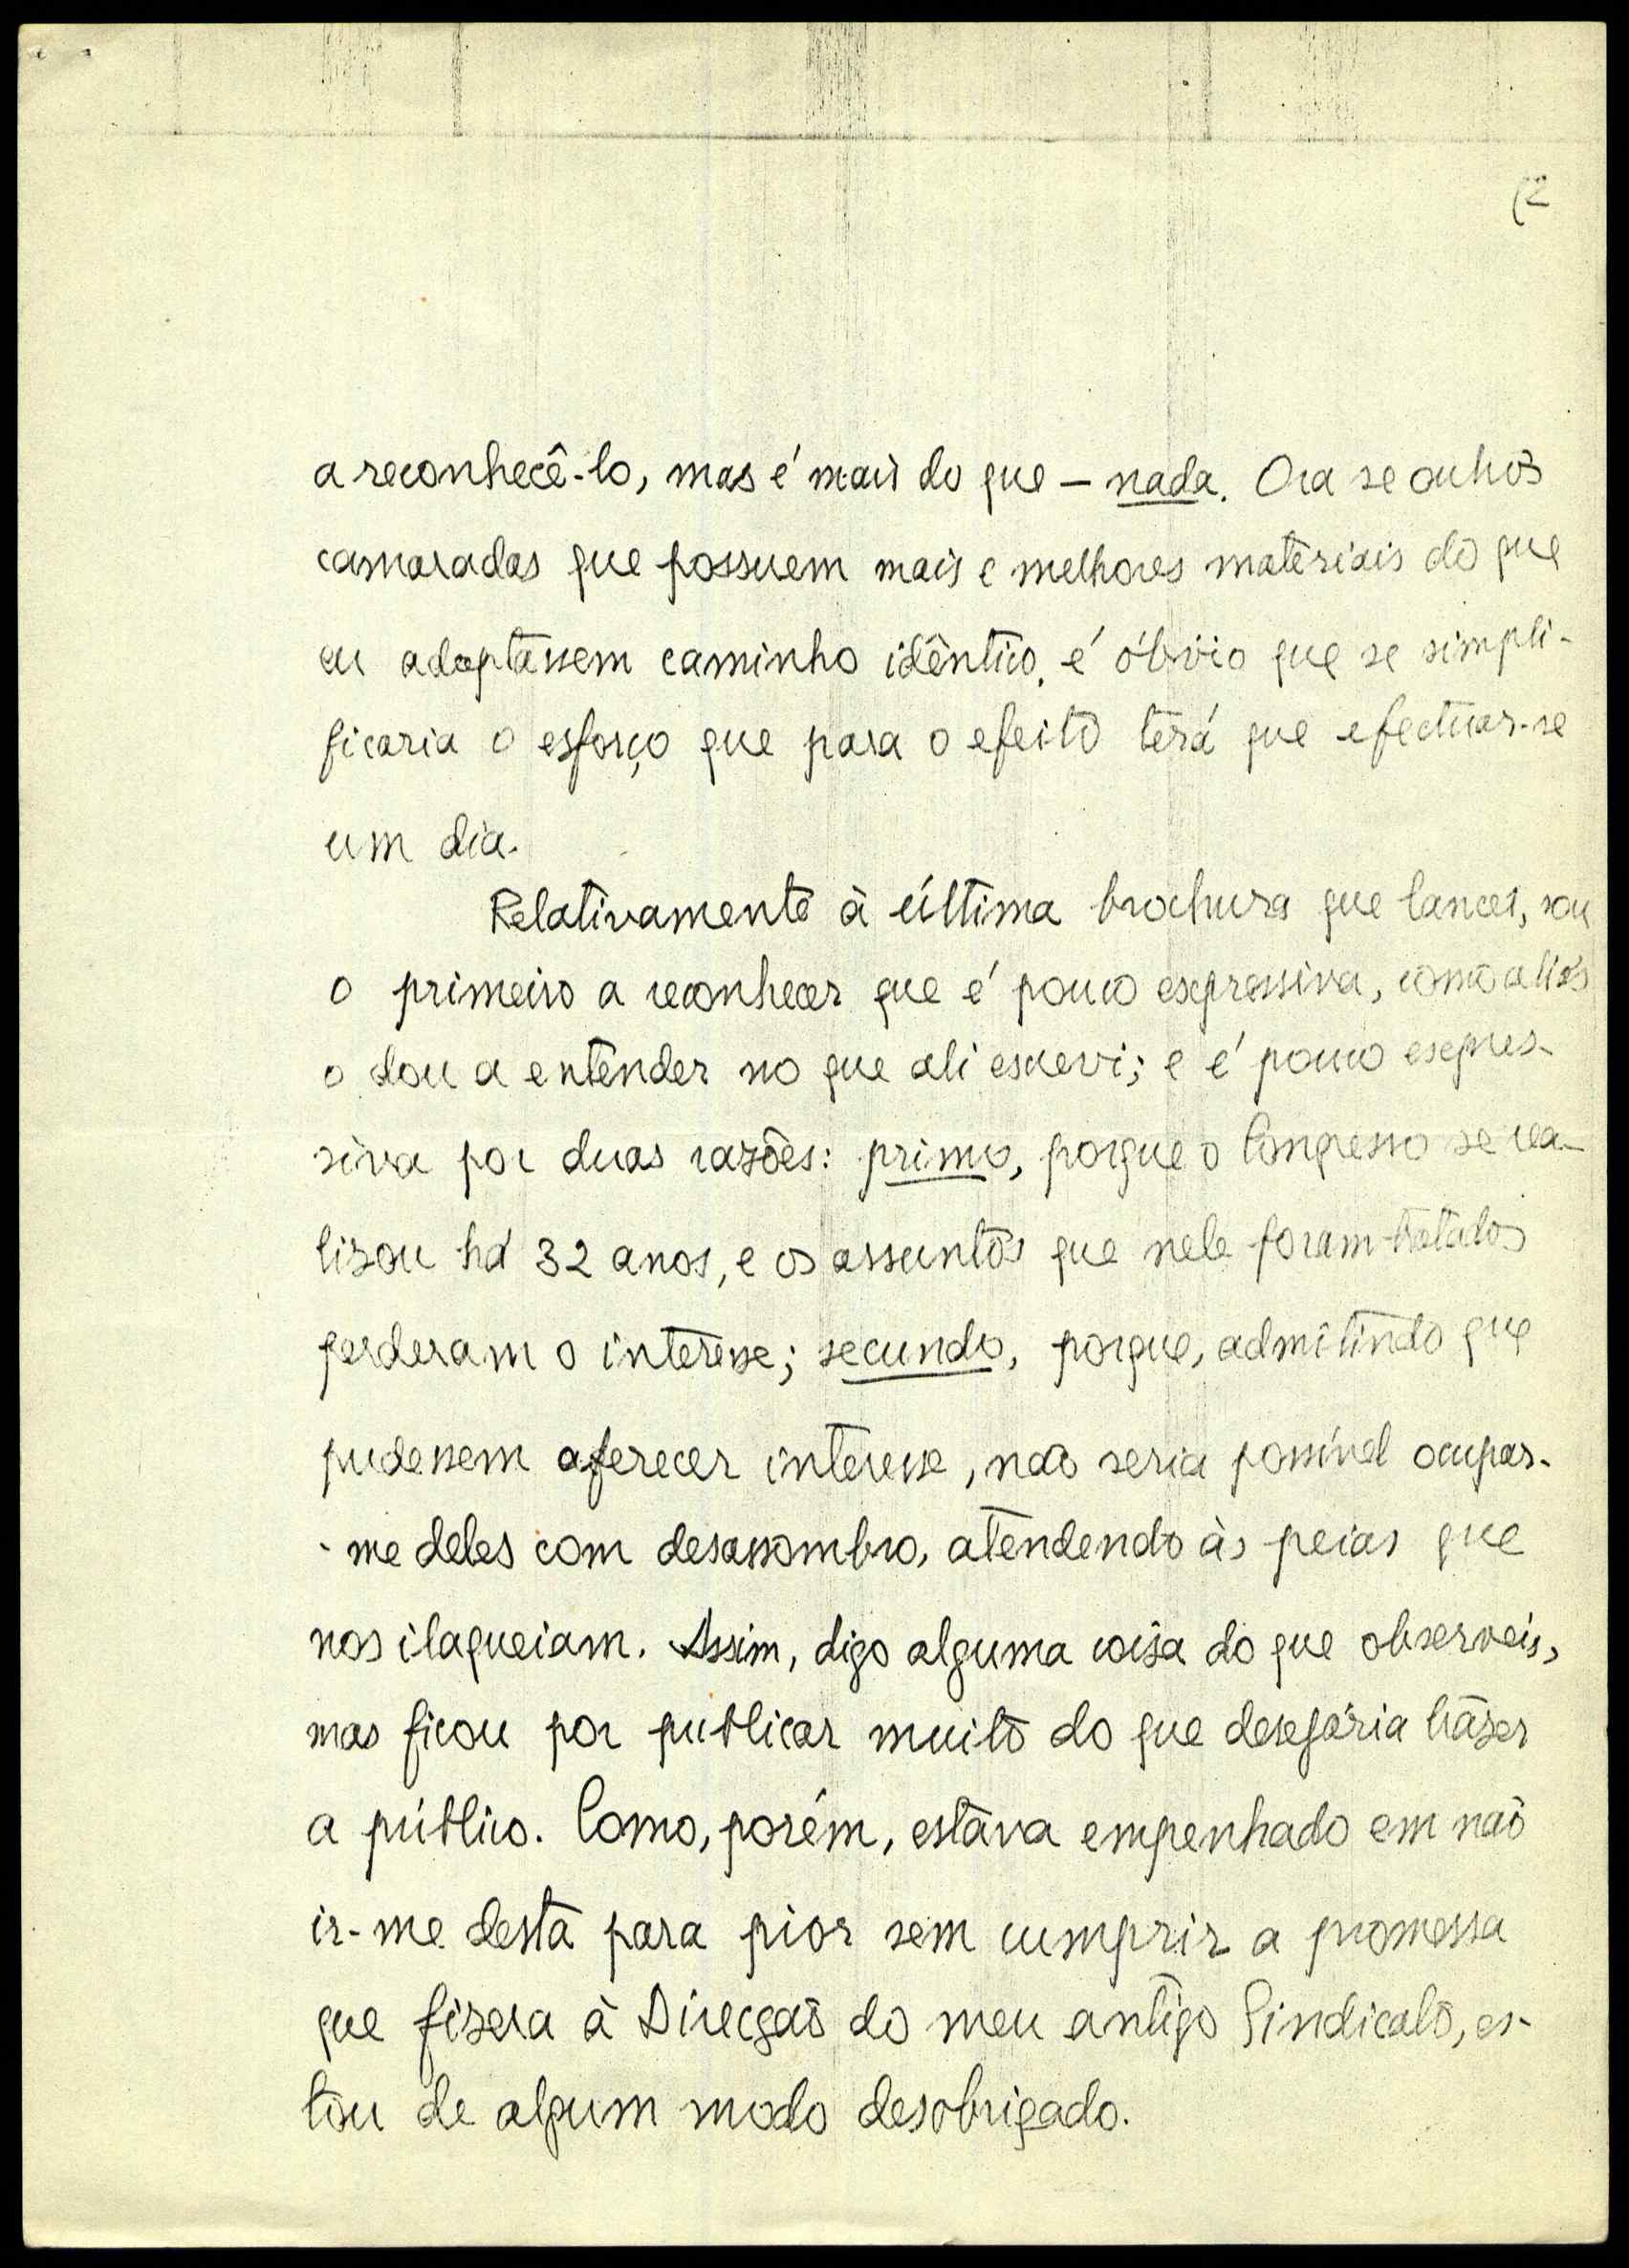 (2
a reconhecê-lo, mas é mais do que — nada. Ora se outros
camaradas que possuem mais e melhores materiais do que
eu adoptassem caminho idêntico, é óbvio que se simpli-
ficaria o esforço que para o efeito terá que efectuar-se
um dia.
Relativamente à última brochura que lancei, sou
o primeiro a reconhecer que é pouco expressiva, como aliás
o dou a entender no que ali escrevi; e é pouco expres-
siva por duas razões: primo, porque o Congresso se rea-
lizou há 32 anos, e os assuntos que nele foram tratados
perderam o interesse; secundo, porque, admitindo que
pudessem oferecer interesse, não seria possível ocupar-
-me deles com desassombro, atendendo às peias que
nos ilaqueiam. Assim, digo alguma coisa do que observei,
mas ficou por publicar muito do que desejaria trazer
a público. Como, porém, estava empenhado em não
ir-me desta para pior sem cumprir a promessa
que fizera à Direcção do meu antigo Sindicato, es-
tou de algum modo desobrigado.